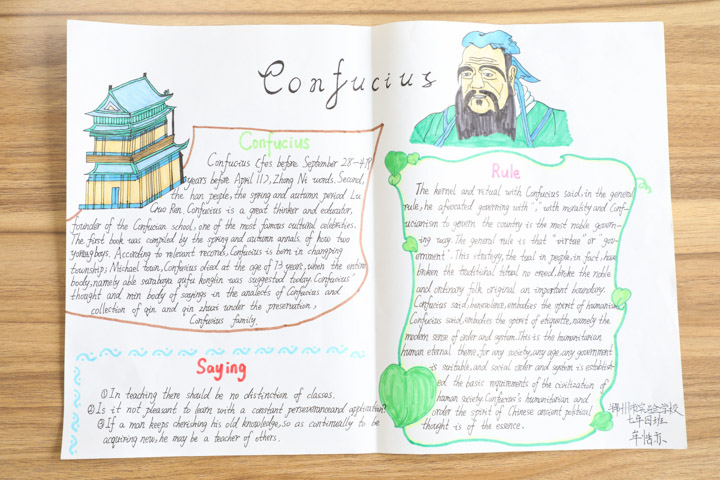 Confucius
Confucius
Confucius (fes before September 28-479
years before April 11), Zhong Ni words. Second,
the han people, the spring and autumn period Lu
Guo Ren. Confucius is a great thinker and educator,
founder of the Confucian school, one of the most famous cultural celebrities.
The first book was compiled by the spring and autumn annals. of how two
young boys. According to relevant records, Confucius is born in changping
township; Michael town, Confucius died at the age of 73 years, when the entire
body, namely able surabaya qufu konglin was suggested today. Confucius'
thought and min body of sayings in the analects of Confucius and
collection of qin and qin zhuzi under the preservation,
Confucius family.
Saying
①In teaching there should be no distinction of classes.
②Is it not pleasant to learn with a constant perseverance and application?
③If a man keeps cherishing his old knowledge, so as continually to be
acquiring new, he may be a teacher of others.
Rule
The kernel and ritual with Confucius said, in the general
rule, he advocated governing with ",", with morality and Conf-
ucianism to govern the country is the most noble govern-
ing way. The general rule is that "virtue or gov-
ernment". This strategy, the tual in people, in fact, have
broken the traditional ritual no creed. broke the noble
and ordinary folk original an important boundary.
Confucius said, benevolence, embodies the spirit of humanism
Confucius said, embodies the spirit of etiquette, namely the
modern sense of order and system. This is the humanitarian
human eternal theme, for any society, any age, any government
is suitable, and social order and system is establish-
ed the basic requirements of the civilization of
human society. Confucius's humanitarian and
order the spirit of Chinese ancient political
thought is of the essence.
学校
七年四班